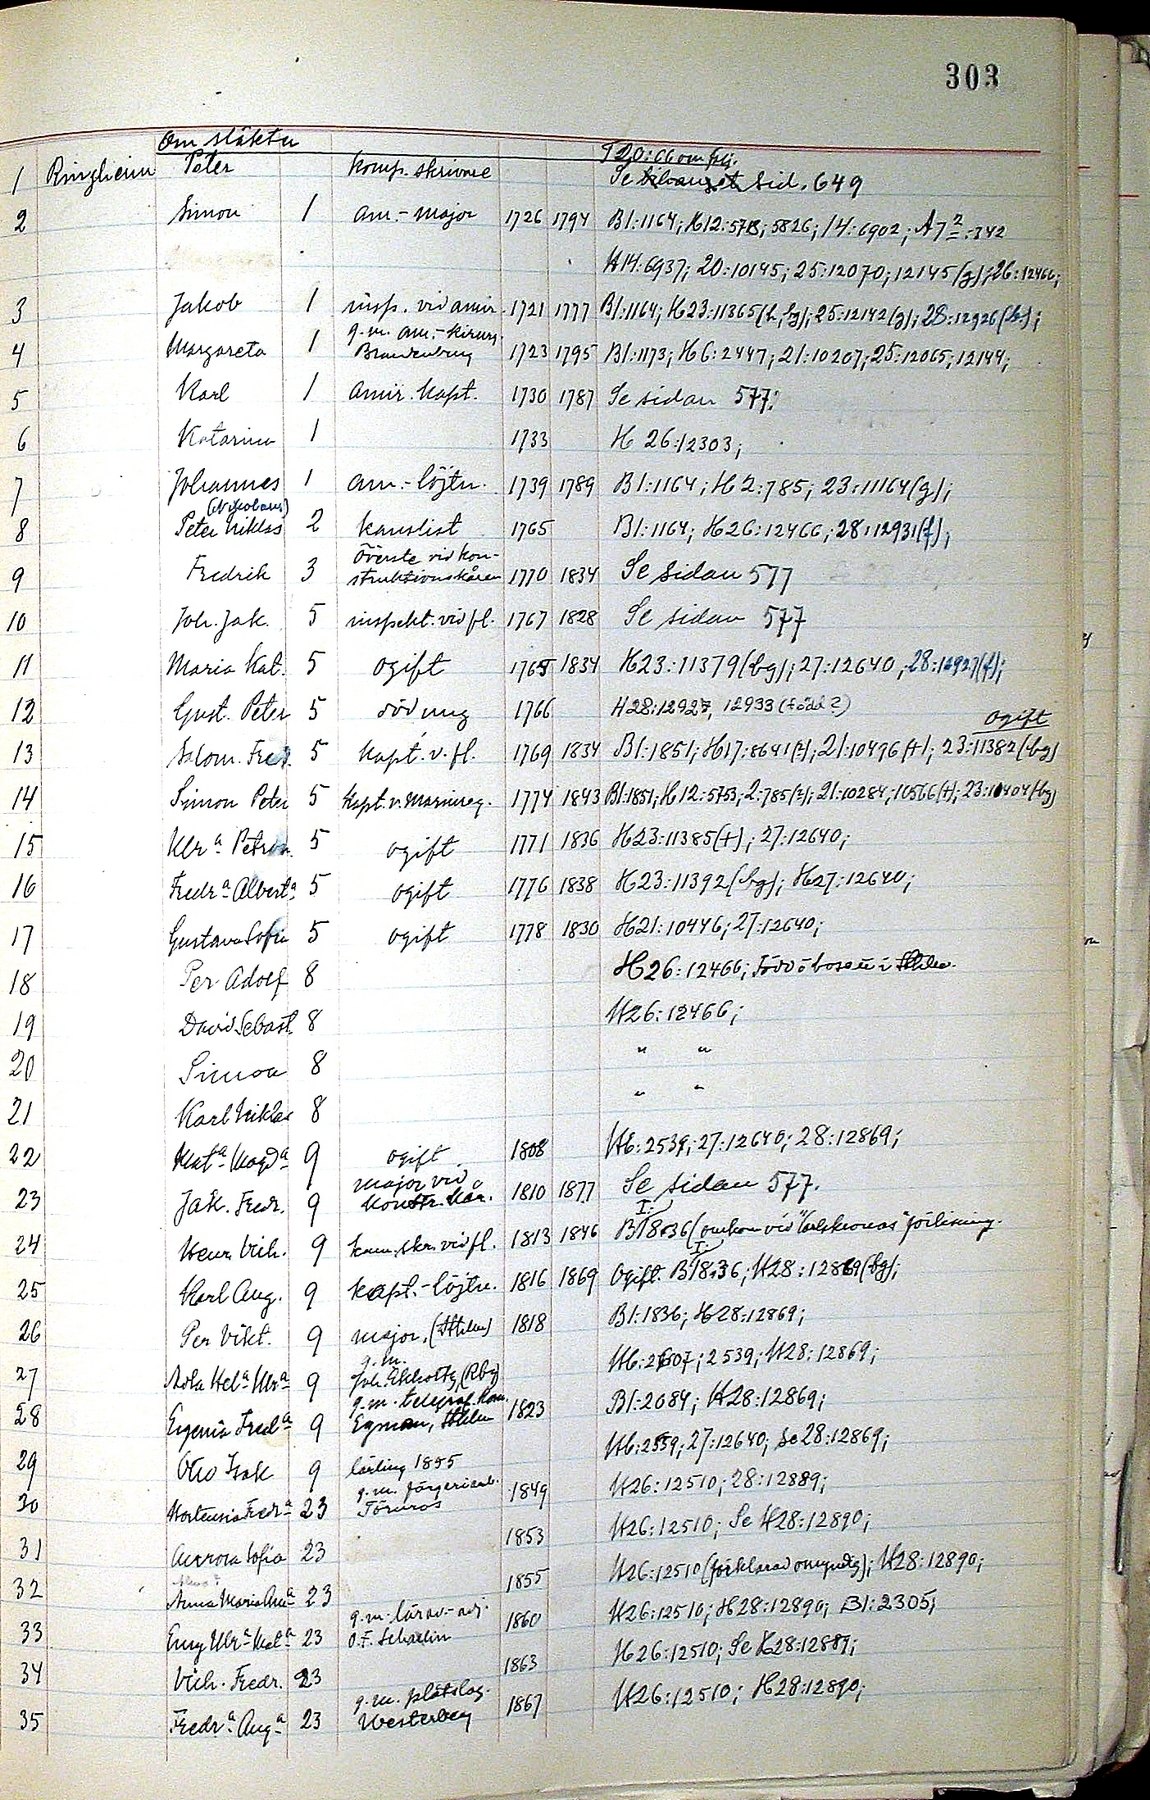 303
Om släkten
1 Ringheim Peter komp. skrivare T20:66 om frg.
Se sid. 649
2 Simon 1 am.-major 1726 1794 B1:1164; H12:5718; 5826; 14:6902; A7²:342
H14:6937; 20:10145; 25:12070; 12145(g); 26:12466;
3 Jakob 1 insp. vid amir. 1721 1777 B1:1164; H23:11365(h, bg); 25:12142(g); 28:12926(b);
4 Margareta 1 g.m. am.-kirurg. Brandenburg 1723 1795 B1:1173; H6:2447; 21:10207; 25:12065; 12144;
5 Karl 1 amir. kapt. 1730 1787 Se sidan 577;
6 Katarina 1 1733 H 26:12303;
7 Johannes 1 am.-löjtn. 1739 1789 B1:1164; H2:785; 23:11164(g);
8 Peter Niklas 2 kanslist 1765 B1:1164; H26:12466; 28:12931(f);
9 Fredrik 3 Överste vid konstruktionskåren 1770 1834 Se sidan 577
10 Joh. Jak. 5 inspekt. vid fl. 1767 1828 Se sidan 577
11 Maria Kat. 5 ogift 1765 1834 H23:11379(bg); 27:12640; 28:12927(f);
12 Gust. Peter 5 död ung 1766 H28:12927, 12933 (född?)
ogift
13 Salom. Fred. 5 kapt. v. fl. 1769 1834 B1:1851; H17:8641(?); 21:10496(+); 23:11382(bg)
14 Simon Peter 5 kapt. v. Marinreg. 1774 1843 B1:1851; H12:5753; 2:785(?); 21:10284; 10566(+); 23:10404(bg)
15 Ulrª Petron. 5 ogift 1771 1836 H23:11385(+); 27:12640;
16 Fredrª Albertª 5 ogift 1776 1838 H23:11392(bg); H27:12640;
17 Gustava Sofia 5 ogift 1778 1830 H21:10446; 27:12640;
18 Per Adolf 8 H26:12466;
19 David Sebast. 8 H26:12466;
20 Simon 8 " "
21 Karl Niklas 8 " "
22 Katª Magdª 9 ogift 1808 H6:2539; 27:12640; 28:12869;
23 Jak. Fredr. 9 major vid konstr. kår. 1810 1877 Se sidan 577.
24 Henr. Vilh. 9 kam. skr. vid fl. 1813 1846 B1836 (omkom vid "Carlskronas" förlisning.
25 Karl Aug. 9 kapt.-löjtn. 1816 1869 Ogift. B1836; H28:12869(bg);
26 Per Vikt. 9 major, (Sthlm) 1818 B1:1836; H28:12869;
27 Helª Ulrª 9 g.m. Joh. Ekholtz (Rby) H6:2607; 2539; H28:12869;
28 Eugenia Fredª 9 g.m. telegraf. kom. Egman, Sthlm 1823 B1:2084; H28:12869;
29 Otto Isak 9 lärling 1855 H6:2559; 27:12640; se 28:12869;
30 Hortensia Fredrª 23 g.m. färgeriarb. Törnros 1849 H26:12510; 28:12889;
31 Aurora Sofia 23 1853 H26:12510; Se H28:12890;
32 Anna Maria 23 1855 H26:12510 (förklarad omyndig); H28:12890;
33 Emy Ulrª Helª 23 g.m. lärov.-adj. O.F. Schaelin 1860 H26:12510; H28:12890; B1:2305;
34 Vilh. Fredr. 23 1863 H26:12510; Se H28:12889;
35 Fredrª Augª 23 g.m. plåtslag. Westerberg 1867 H26:12510; H28:12890;